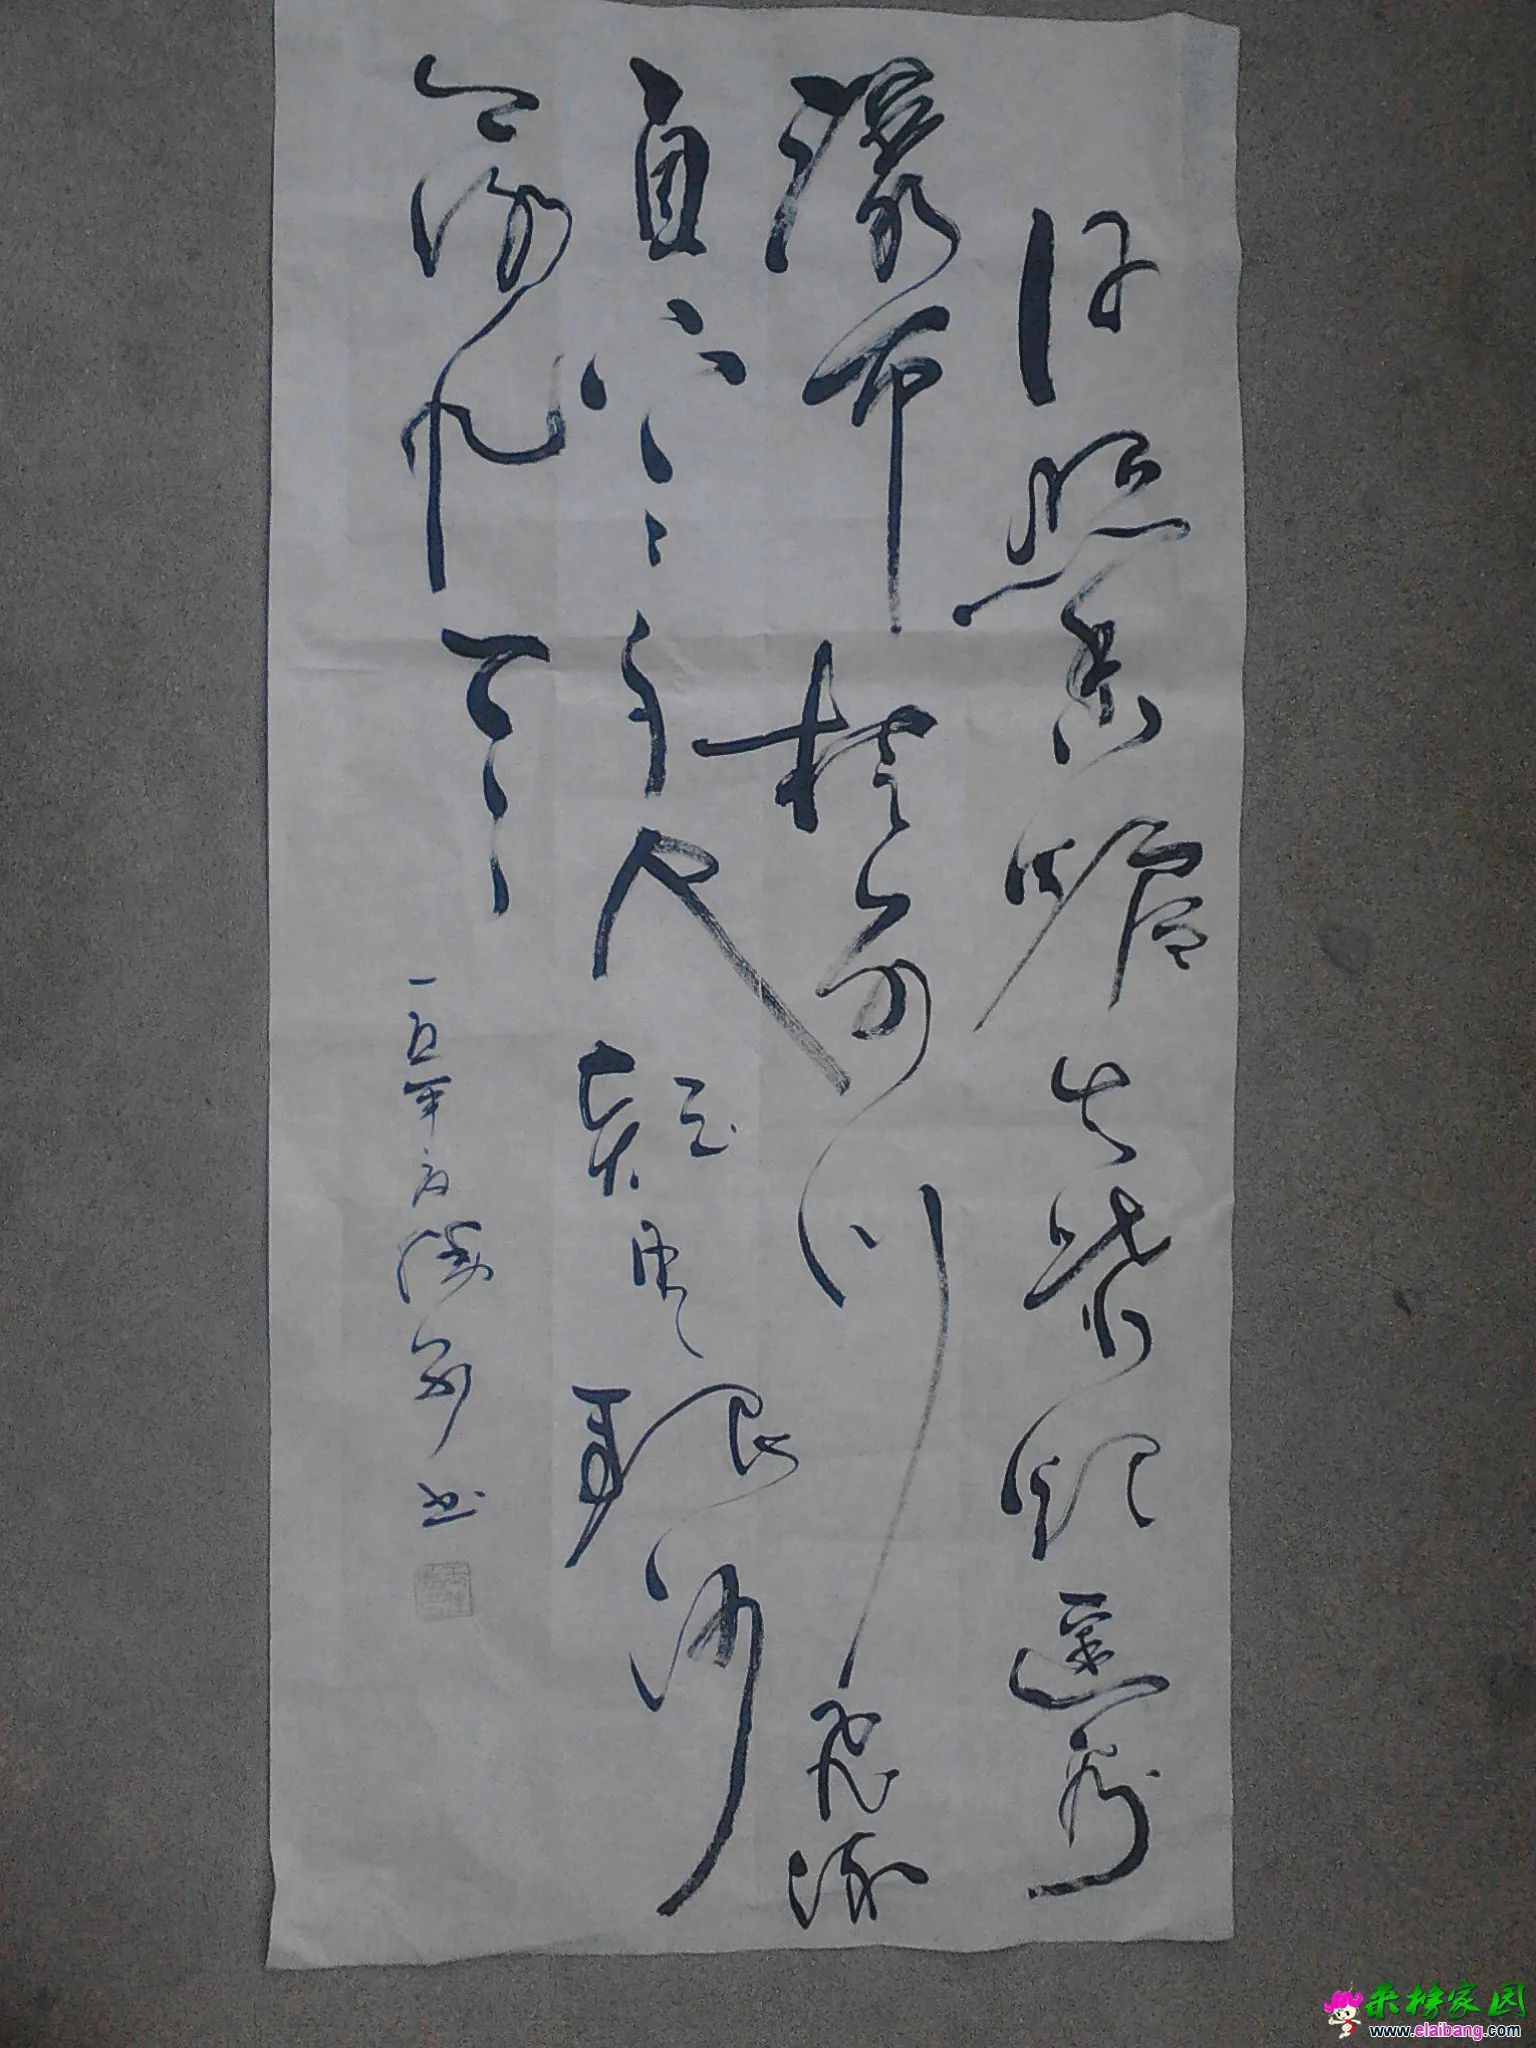 日照香炉生紫烟遥看
瀑布挂前川飞流
直下三千尺疑是银河
落九天
一五年六月
书
采榜家园
www.elaibang.com